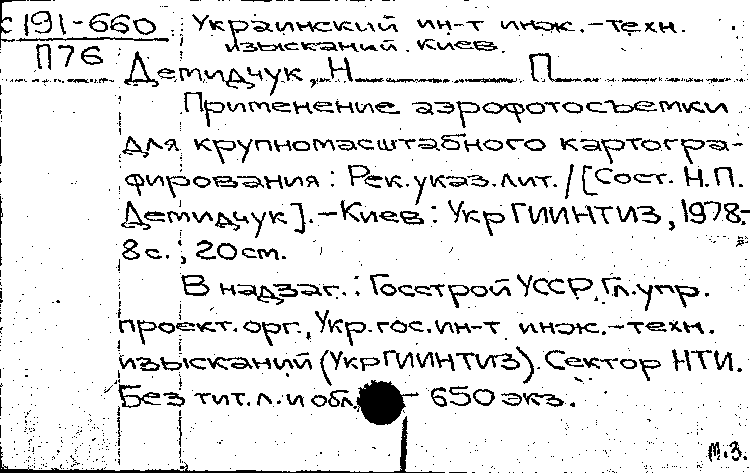 с191-660 Украинский ин-т инж.-техн.
изысканий. Киев.
П76
Демидчук, Н П
Применение аэрофотосъемки
для крупномасштабного картогра-
фирования: Рек. указ. лит. / [Сост. Н.П.
Демидчук]. - Киев: УкрГИИНТИЗ, 1978.-
8 с.; 20 см.
В надзаг.: Госстрой УССР, Гл. упр.
проект. орг., Укр. гос. ин-т инж.-техн.
изысканий (УкрГИИНТИЗ). Сектор НТИ.
Без тит. л. и обл. - 650 экз.
М.З.